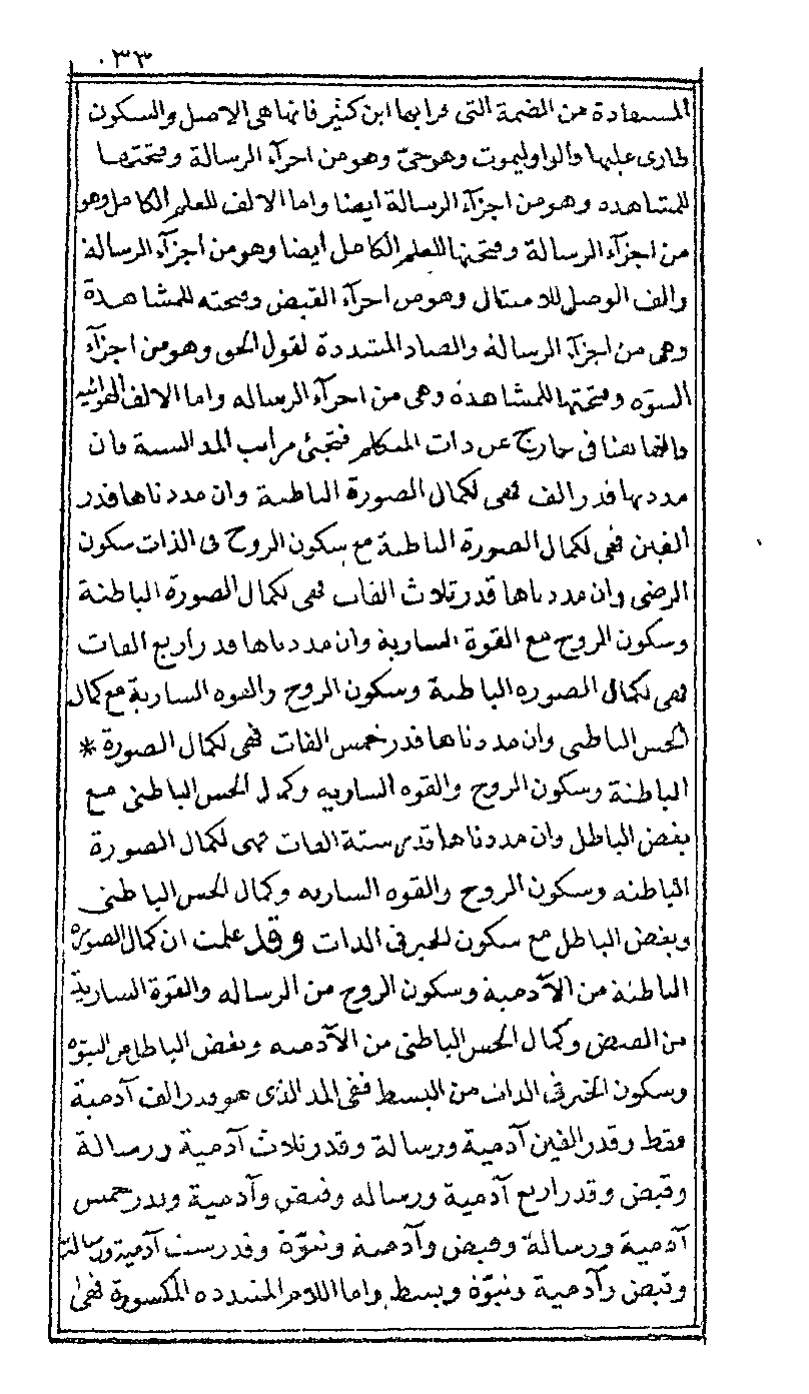 ٠٣٣
المستفادة من الضمة التى قرا بها ابن كثير فانها هى الاصل والسكون
طارى عليها والواو ليموت وهو حىّ وهو من اجزآء الرسالة وفتحتها
للمشاهده وهو من اجزآء الرسالة ايضا واما الالف للعلم الكامل وهو
من اجزآء الرسالة وفتحتها للعلم الكامل ايضا وهو من اجزآء الرسالة
والف الوصل للامتثال وهو من اجزآء القبض وفتحته للمشاهدة
وهى من اجزآء الرسالة والصاد المشددة لقول الحق وهو من اجزآء
النبوّه وفتحتها للمشاهدة وهى من اجزآء الرساله واما الالف الهوائيه
والفا هنا فى خارج عن ذات المتكلم فتجئ مراتب المد الستة فان
مددتها قدر الف فهى لكمال الصورة الباطنة وان مددناها قدر
الفين فهى لكمال الصورة الباطنة مع سكون الروح فى الذات سكون
الرضى وان مددناها قدر ثلاث الفات فهى لكمال الصورة الباطنة
وسكون الروح مع القوة السارية وان مددناها قدر اربع الفات
فهى لكمال الصوره الباطنة وسكون الروح والقوه السارية مع كمال
الحس الباطنى وان مددناها قدر خمس الفات فهى لكمال الصورة *
الباطنة وسكون الروح والقوه الساريه وكمال الحس الباطنى مع
بغض الباطل وان مددناها قدر ستة الفات فهى لكمال الصورة
الباطنه وسكون الروح والقوه الساريه وكمال الحس الباطنى
وبغض الباطل مع سكون الخير فى الذات وقد علمت ان كمال الصوره
الباطنه من الآدمية وسكون الروح من الرساله والقوة السارية
من القبض وكمال الحس الباطنى من الآدميه وبغض الباطل من النبوّه
وسكون الخير فى الذات من البسط ففى المد الذى هو قدر الف آدمية
فقط وقدر الفين آدمية ورسالة وقدر ثلاث آدمية ورسالة
وقبض وقدر اربع آدمية ورساله وقبض وآدمية وقدر خمس
آدمية ورسالة وقبض وآدمية ونبوّة وقدر ست آدمية ورسالة
وقبض وآدمية ونبوّة وبسط واما اللام المشدده المكسورة فهى